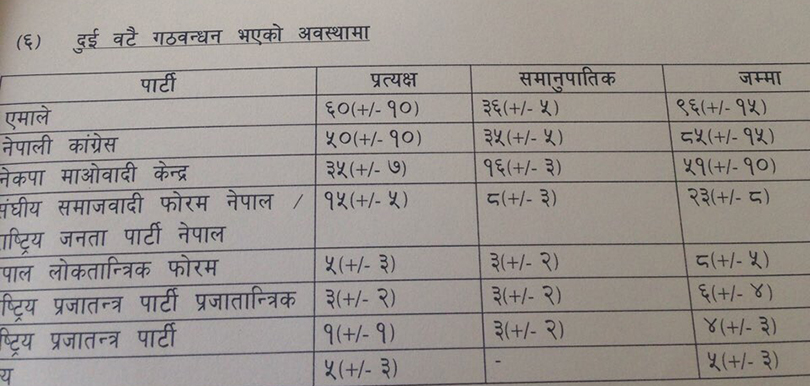 (६) दुई वटै गठवन्धन भएको अवस्थामा
पार्टी प्रत्यक्ष समानुपातिक जम्मा
एमाले ६०(+/- १०) ३६(+/- ५) ९६(+/- १५)
नेपाली कांग्रेस ५०(+/- १०) ३५(+/- ५) ८५(+/- १५)
नेकपा माओवादी केन्द्र ३५(+/- ७) १६(+/- ३) ५१(+/- १०)
संघीय समाजवादी फोरम नेपाल / १५(+/- ५) ८(+/- ३) २३(+/- ८)
ाष्ट्रिय जनता पार्टी नेपाल
पाल लोकतान्त्रिक फोरम ५(+/- ३) ३(+/- २) ८(+/- ५)
ष्ट्रिय प्रजातन्त्र पार्टी प्रजातान्त्रिक ३(+/- २) ३(+/- २) ६(+/- ४)
ष्ट्रिय प्रजातन्त्र पार्टी १(+/- १) ३(+/- २) ४(+/- ३)
य ५(+/- ३) - ५(+/- ३)